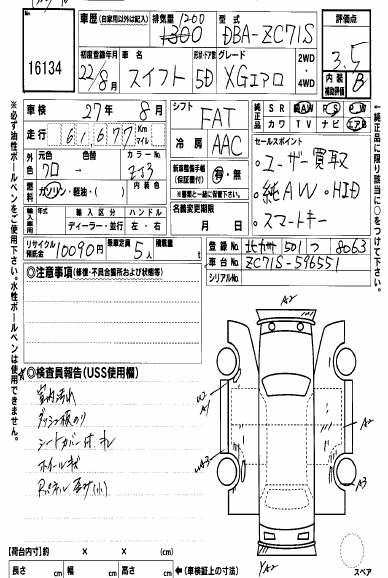 No.
16134
車歴
(自家用以外は記入)
排気量
1200
1300
型式
DBA-ZC71S
評価点
3.5
初度登録年月
22/8月
車名
スイフト
形状・ドア数
5D
グレード
XGエアロ
2WD
4WD
内装
補助評価
B
車検
27年 8月
シフト
FAT
純正品
SR
AW
PS
PW
カワ
TV
ナビ
エアB
走行
61,677
Km
マイル
冷房
AAC
セールスポイント
・ユーザー買取
・純AW ・HID
・スマートキー
外色
元色
クロ
色替
→
カラーNo.
ZJ3
燃料
ガソリン・軽油・( )
内装色
新車整備手帳
(保証書付)
有・無
※書類と一緒に保管下さい
名義変更期限
月 日
輸入車
年式
輸入区分
ディーラー・並行
ハンドル
左・右
リサイクル
預託金
10090円
乗車定員
5人
積載量
t
登録No.
501 つ 8063
車台No.
ZC71S-596551
シリアルNo.
◎注意事項
(修復・不具合箇所および状態等)
※必ず油性ボールペンをご使用下さい。水性ボールペンは使用できません。
純正品に限り該当に○をつけて下さい
◎検査員報告(USS使用欄)
室内汚れ
ダッシュ板のり
シートカバー
ホイールキズ
A2
A1
A3
YA2
スペア
【荷台内寸】約 × × (cm)
長さ cm
幅 cm
高さ cm
←(車検証上の寸法)